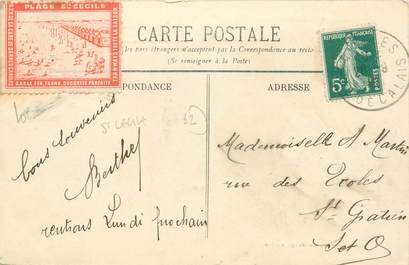 PLAGE STE CÉCILE
SABLE FIN FERME DOUCEUR PARFAITE
CARTE POSTALE
pays étrangers n'acceptent pas la Correspondance au recto
(Se renseigner à la Poste)
PONDANCE
ADRESSE
REPUBLIQUE FRANÇAISE
5c
POSTES
DE CALAIS
ST CECILE
32
Bons souvenirs
Berthe
rentrons Lundi prochain
Mademoiselle A Martin
rue des Ecoles
St Gratien
Set O